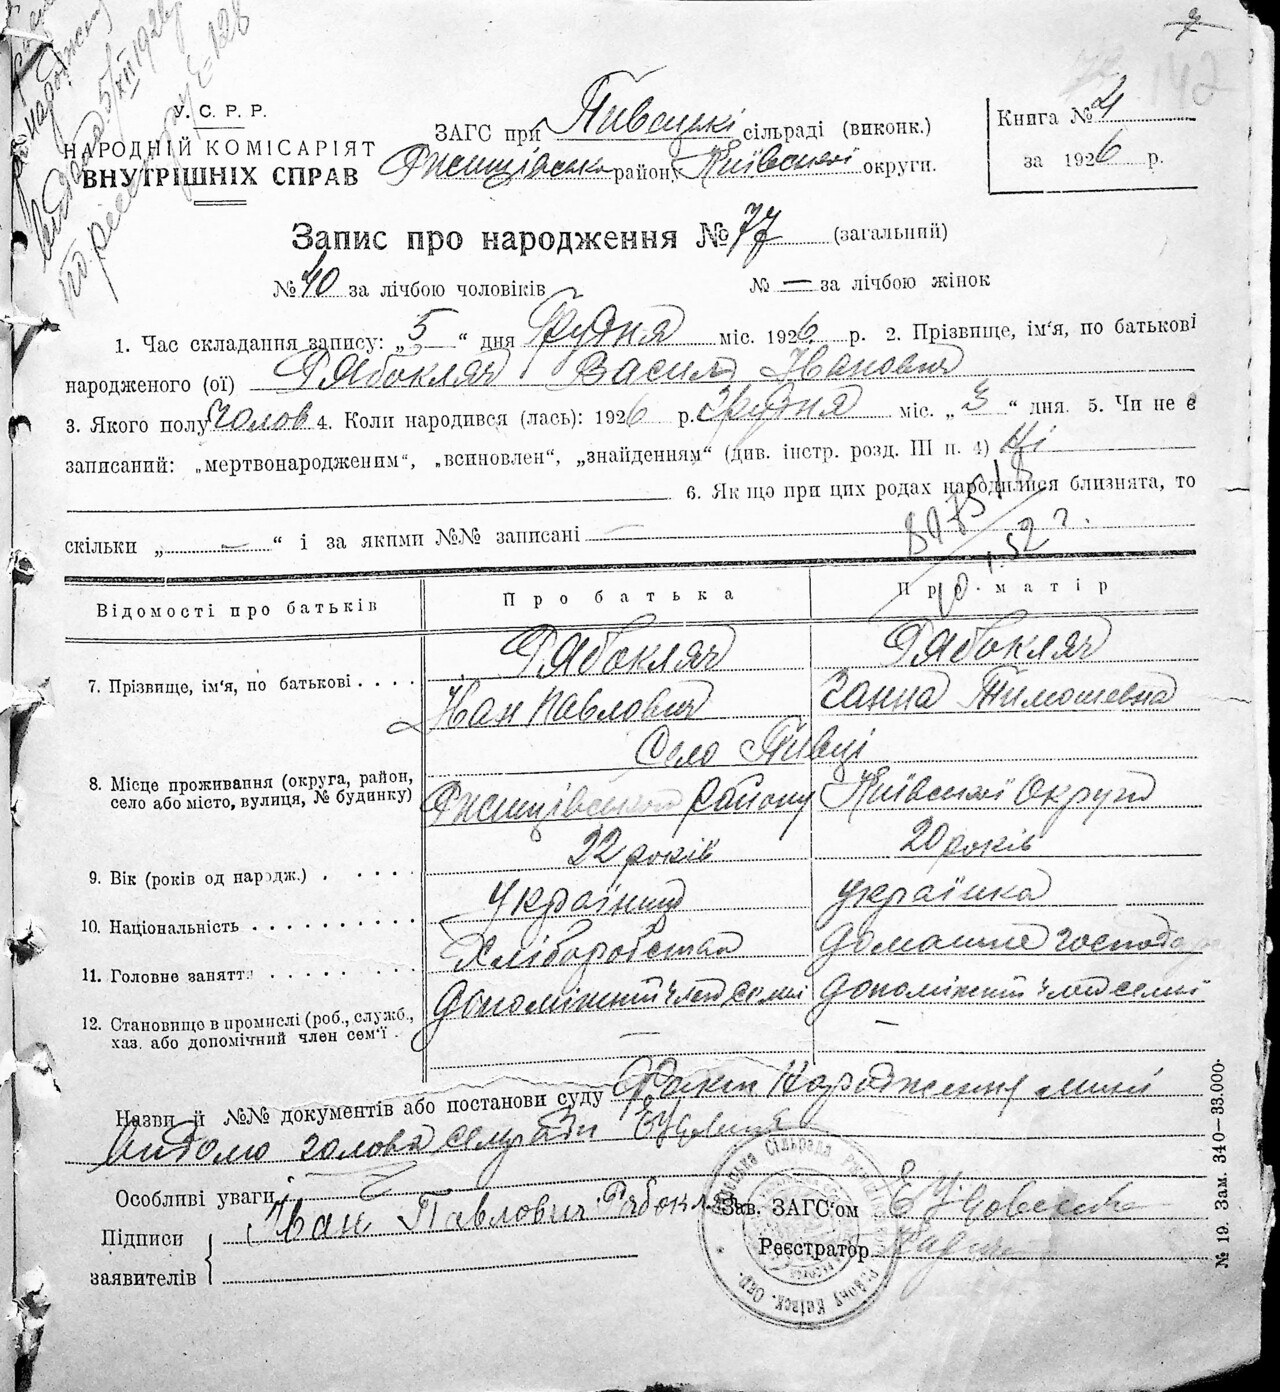 У. С. Р. Р.
НАРОДНІЙ КОМІСАРІЯТ
ВНУТРІШНІХ СПРАВ
ЗАГС при Пивецькі сільраді (виконк.)
району Київської округи.
Книга № 4
за 1926 р.
Запис про народження № 77 (загальний)
№ 40 за лічбою чоловіків № — за лічбою жінок
1. Час складання запису: „5“ дня Грудня міс. 1926 р. 2. Прізвище, ім'я, по батькові
народженого (ої) Рябокляч Василь Іванович
3. Якого полу Чолов 4. Коли народився (лась): 1926 р. Грудня міс. „3“ дня. 5. Чи не є
записаний: „мертвонародженим“, „всиновлен“, „знайденям“ (див. інстр. розд. III п. 4) Ні
6. Якщо при цих родах народилися близнята, то
скільки „ — “ і за якими №№ записані —
Відомості про батьків Про батька Про матір
7. Прізвище, ім'я, по батькові . . . . Рябокляч Рябокляч
Іван Павлович Ганна Тимошевна
Село Пивці
8. Місце проживання (округа, район,
село або місто, вулиця, № будинку) Району Київської Округи
9. Вік (років од народж.) . . . . . 22 років 20 років
10. Національність . . . . . . . . Українец українка
11. Головне заняття . . . . . . . Хліборобства домашнє господар
12. Становище в промислі (роб., служб.,
хаз. або допомічний член сем'ї . Допоміжний член семі Допоміжний член семі
— —
Назви й №№ документів або постанови суду Факт Народження мині
видомо голова сельради
Особливі уваги
Підписи Іван Павлович Рябокляч
заявителів
Зав. ЗАГС'ом
Реєстратор
№ 19. Зам. 340—33.000.